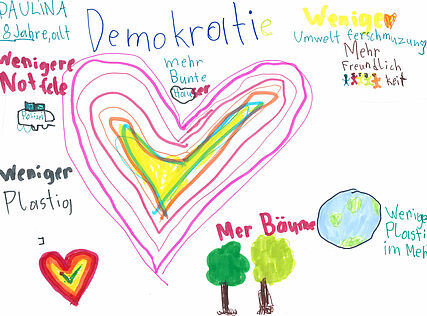 PAULINA
8 Jahre, alt
Demokratie
Weniger
Umwelt ferschmuzung
Mehr
Freundlich
keit
Wenigere
Notfele
Polizei
mehr
Bunte
Häuser
Weniger
Plastiq
Mer Bäume
Wenige
Plasti
im Meh